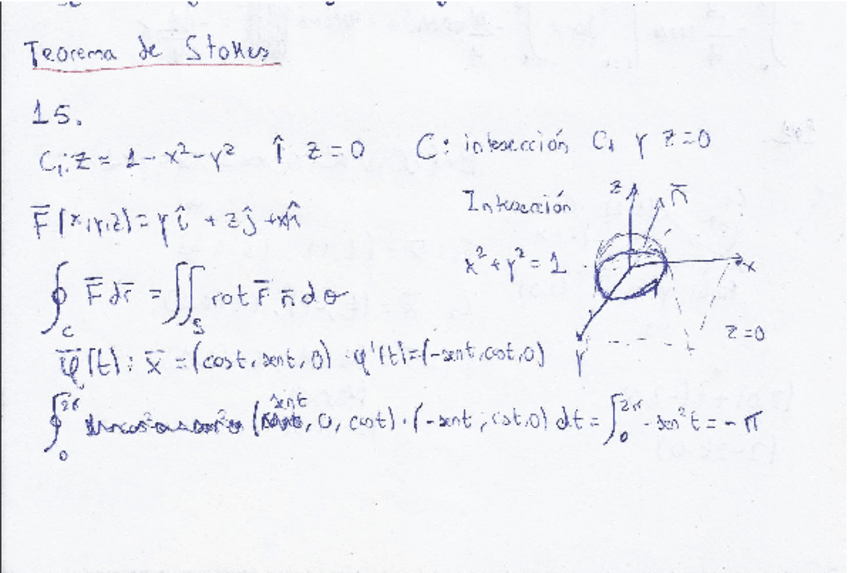 Teorema de Stokes
15.
C₁: z = 1 - x² - y² î z = 0 C: intesección C₁ y z = 0
F̄(x,y,z) = y î + z ĵ + x k̂
Intesección
x² + y² = 1
z n̄
x
y
z = 0
∮_C F̄ dr̄ = ∬_S rot F̄ n̄ dσ
φ̄(t): x̄ = (cost, sent, 0) φ'(t) = (-sent, cost, 0)
∮₀^2π (sent, 0, cost) · (-sent, cost, 0) dt = ∫₀^2π - sen²t = - π